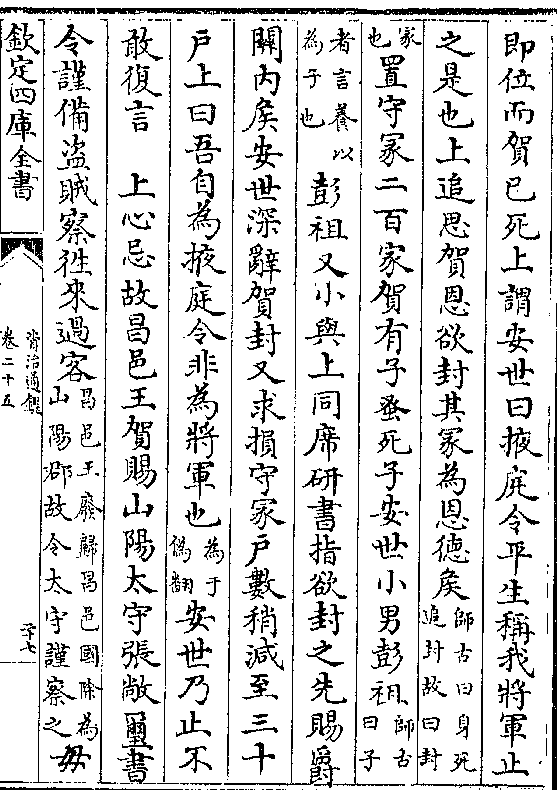 即位而賀已死上謂安世曰掖庭令平生稱我將軍止
之是也上追思賀恩欲封其冢為恩德侯師古曰身死追封故曰封
冢也置守冢二百家賀有子蚤死子安世小男彭祖師古曰子
者言養以為子也彭祖又小與上同席研書指欲封之先賜爵
關内侯安世深辭賀封又求損守冢戶數稍減至三十
戶上曰吾自為掖庭令非為將軍也為于偽翻安世乃止不
敢復言　上心忌故昌邑王賀賜山陽太守張敞璽書
令謹備盗賊察徃來過客昌邑王廢歸昌邑國除為山陽郡故令太守謹察之毋
欽定四庫全書
資治通鑑
卷二十五
二十七